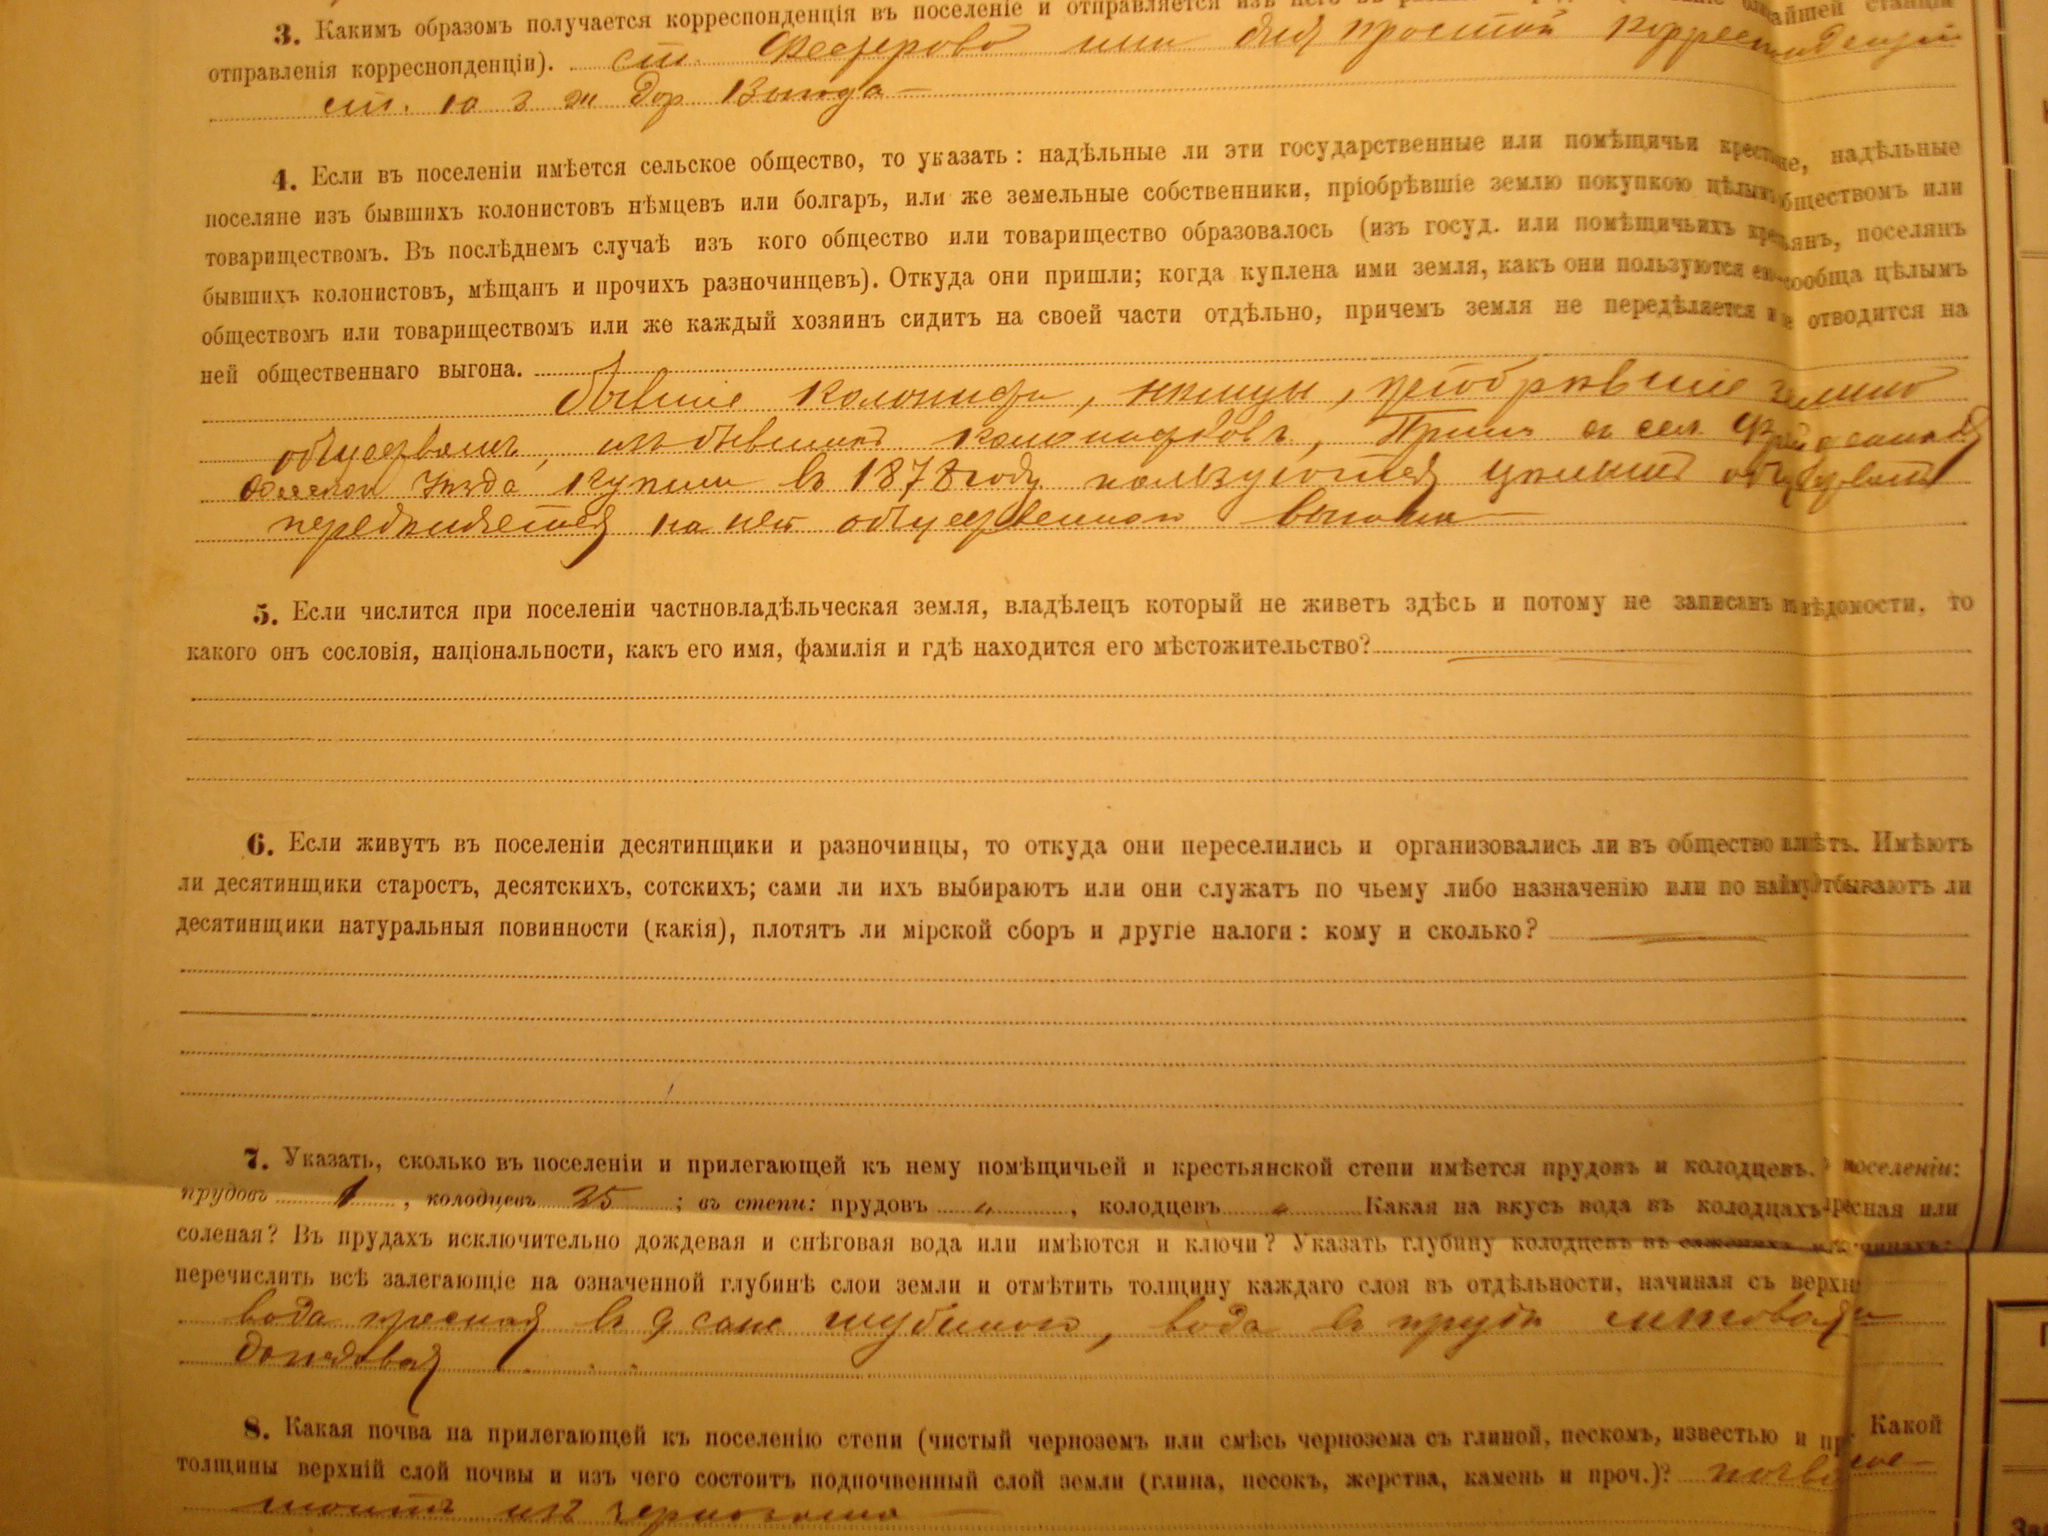 3. Какимъ образомъ получается корреспонденція въ поселеніе и отправляется изъ него
отправленія корреспонденціи). ст. Фестерово или для простой корреспонденціи
ст. ю з ж дор Выгода
4. Если въ поселеніи имѣется сельское общество, то указать: надѣльные ли эти государственные или помѣщичьи крестьяне, надѣльные
поселяне изъ бывшихъ колонистовъ нѣмцевъ или болгаръ, или же земельные собственники, пріобрѣвшіе землю покупкою цѣлымъ обществомъ или
товариществомъ. Въ послѣднемъ случаѣ изъ кого общество или товарищество образовалось (изъ госуд. или помѣщичьихъ крестьянъ, поселянъ
бывшихъ колонистовъ, мѣщанъ и прочихъ разночинцевъ). Откуда они пришли; когда куплена ими земля, какъ они пользуются ею сообща цѣлымъ
обществомъ или товариществомъ или же каждый хозяинъ сидитъ на своей части отдѣльно, причемъ земля не передѣляется и не отводится на
ней общественнаго выгона.
бывшіе колонисты, нѣмцы, пріобрѣвшіе землю
обществомъ, изъ бывшихъ колонистовъ, Пришли съ сел.
Одесскаго Уѣзда, купили въ 1878 году пользуются цѣлымъ обществомъ
передѣляется на ней общественного выгона
5. Если числится при поселеніи частновладѣльческая земля, владѣлецъ который не живетъ здѣсь и потому не записанъ въ вѣдомости, то
какого онъ сословія, національности, какъ его имя, фамилія и гдѣ находится его мѣстожительство?
6. Если живутъ въ поселеніи десятинщики и разночинцы, то откуда они переселились и организовались ли въ общество имѣтъ. Имѣютъ
ли десятинщики старостъ, десятскихъ, сотскихъ; сами ли ихъ выбираютъ или они служатъ по чьему либо назначенію или по найму отбываютъ ли
десятинщики натуральныя повинности (какія), плотятъ ли мірской сборъ и другіе налоги: кому и сколько?
7. Указать, сколько въ поселеніи и прилегающей къ нему помѣщичьей и крестьянской степи имѣется прудовъ и колодцевъ. поселеніи:
прудовъ 1, колодцевъ 25; въ степи: прудовъ „, колодцевъ „ Какая на вкусъ вода въ колодцахъ прѣсная или
соленая? Въ прудахъ исключительно дождевая и снѣговая вода или имѣются и ключи? Указать глубину колодцевъ въ саженяхъ
перечислить всѣ залегающіе на означенной глубинѣ слои земли и отмѣтить толщину каждаго слоя въ отдѣльности, начиная съ верхн
вода пресная въ 9 саж глубиною, вода въ пруде снѣговая и
дождевая
8. Какая почва на прилегающей къ поселенію степи (чистый черноземъ или смѣсь чернозема съ глиной, пескомъ, известью и пр. Какой
толщины верхній слой почвы и изъ чего состоитъ подпочвенный слой земли (глина, песокъ, жерства, камень и проч.)? почва со-
стоитъ изъ чернозема